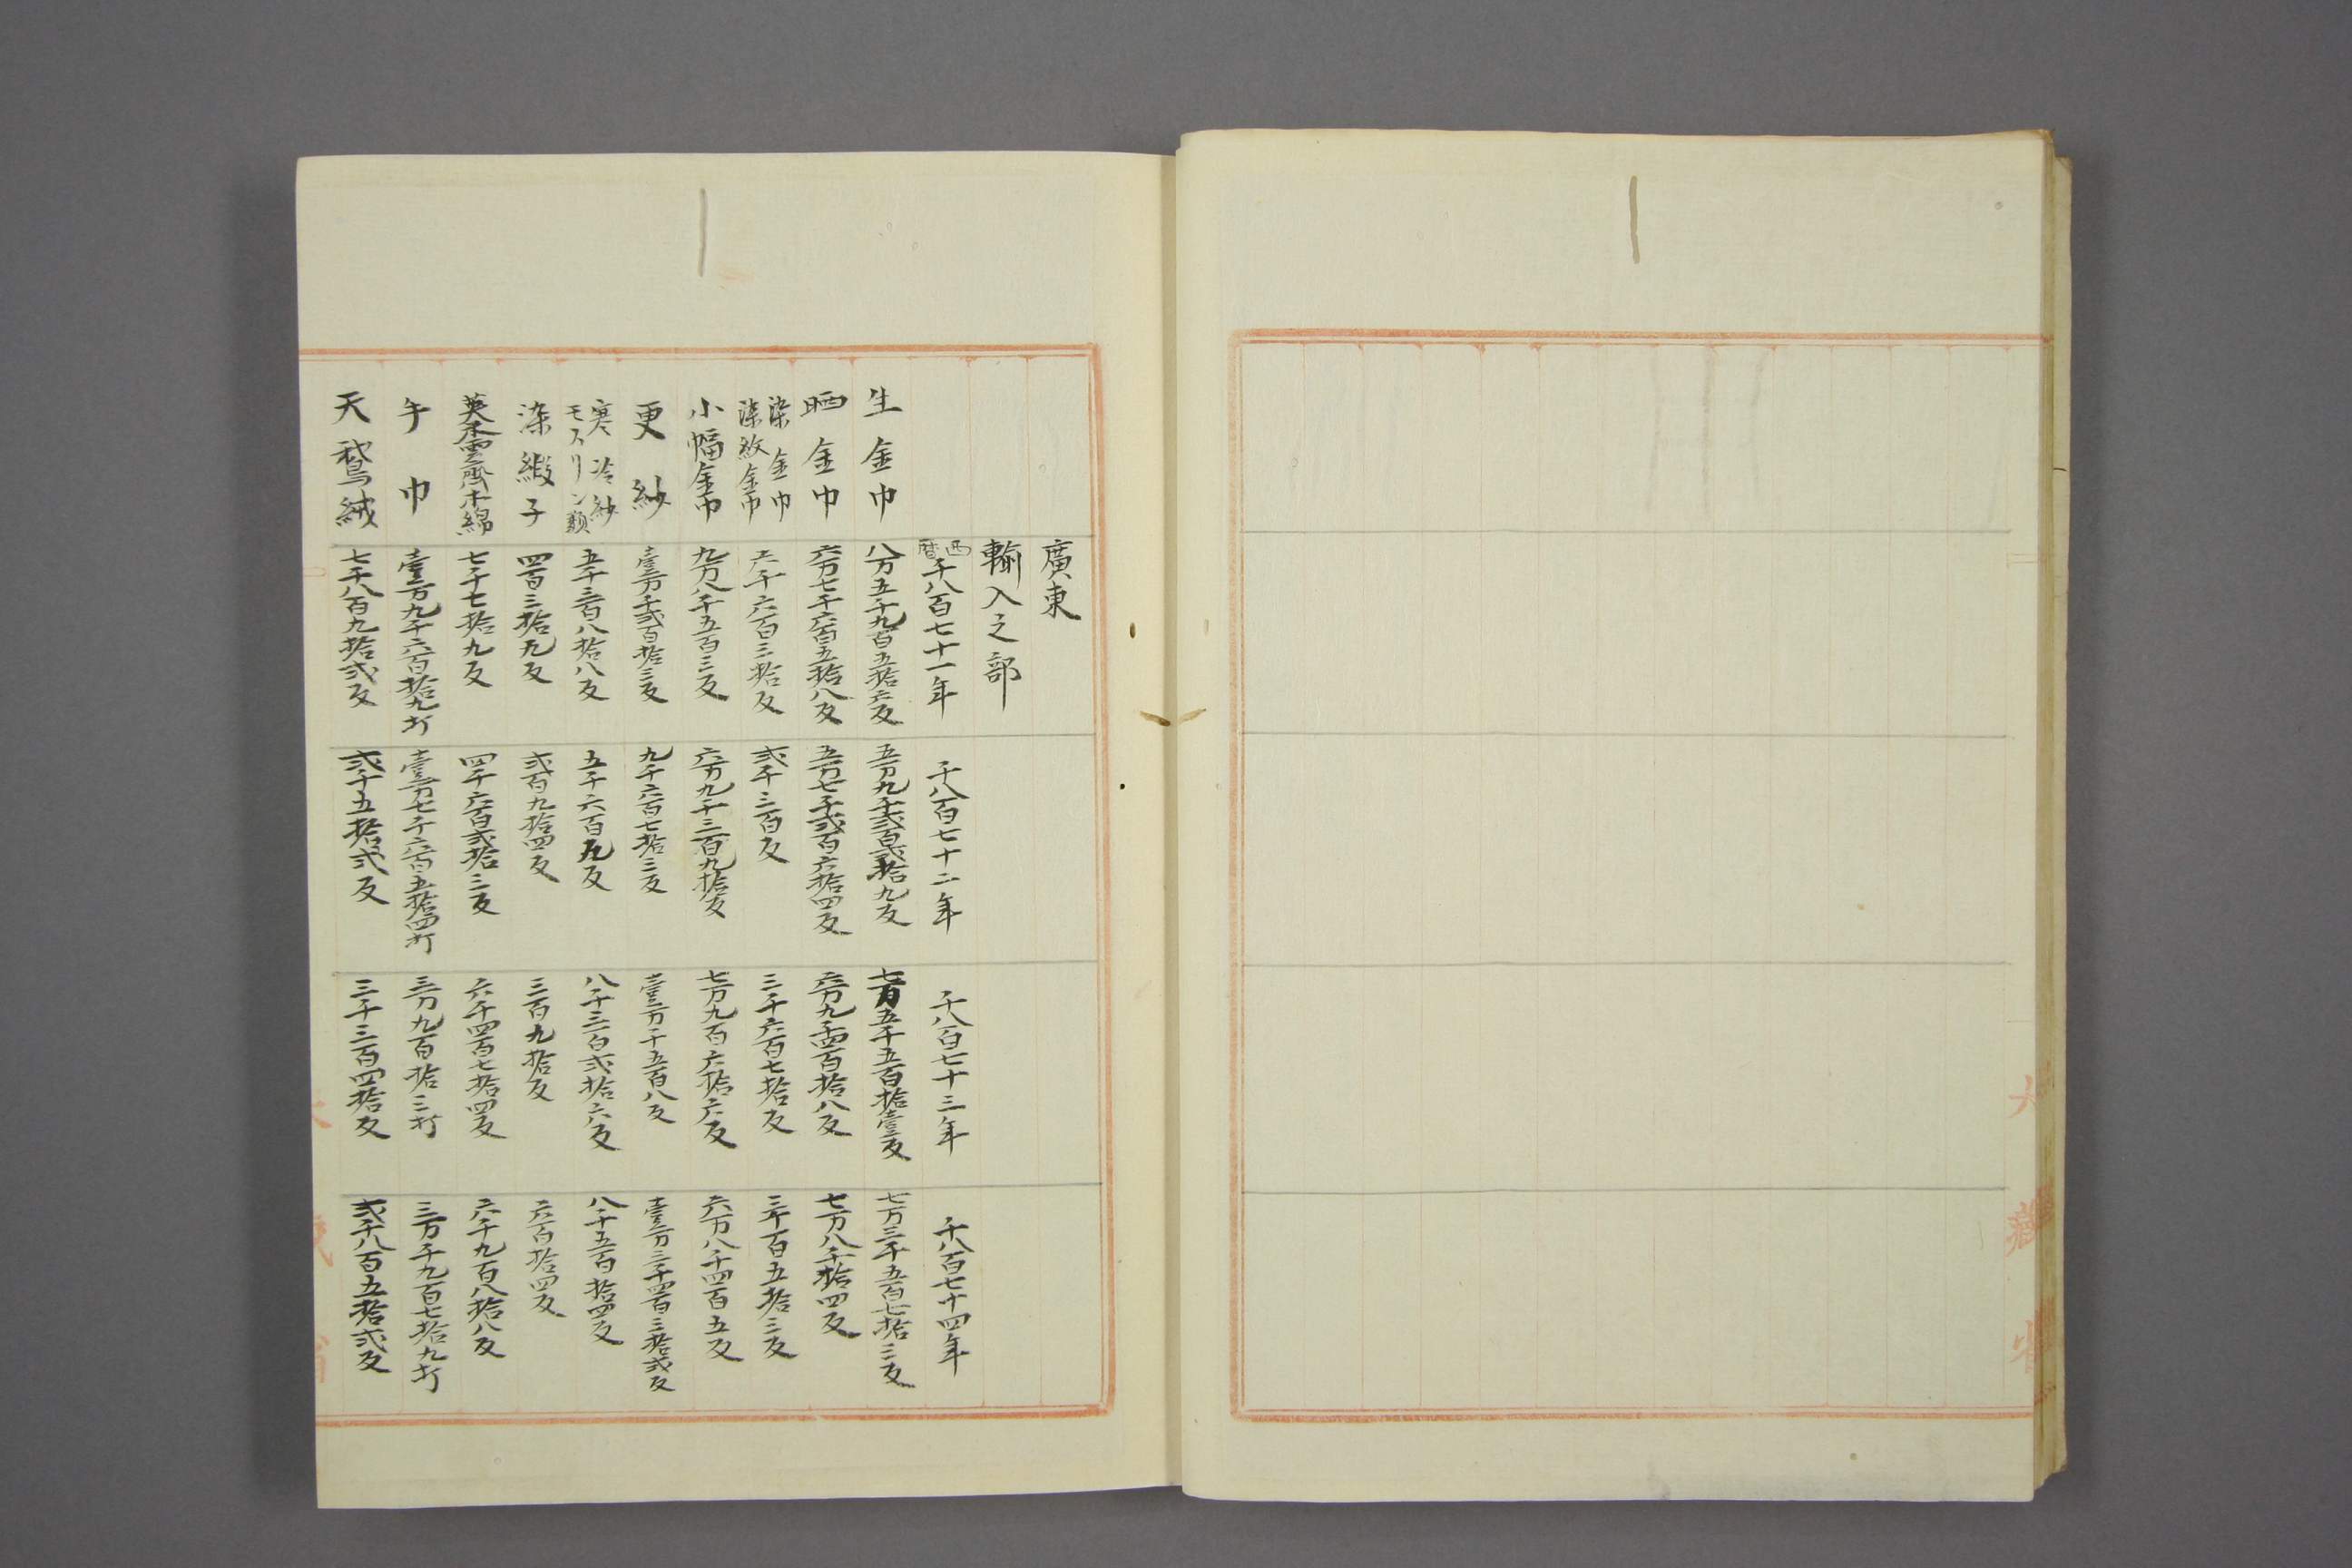 大藏省
廣東
輸入之部
西暦千八百七十一年　千八百七十二年　千八百七十三年　千八百七十四年
生金巾　八万五千九百五拾六反　五万九千弐百弐拾九反　七万五千五百拾壹反　七万三千五百七拾三反
晒金巾　六万七千六百五拾八反　五万七千弐百六拾四反　六万九千四百拾八反　七万八千拾四反
染金巾　染紋金巾　六千六百三拾反　弐千三百反　三千六百七拾反　三千百五拾三反
小幅金巾　九万八千五百三反　六万九千三百九拾反　七万九百六拾六反　六万八千四百五反
更紗　壹万千弐百拾三反　九千六百七拾三反　壹万千五百八反　壹万三千四百三拾弐反
寒冷紗　モスリン類　五千三百八拾八反　五千六百九反　八千三百弐拾六反　八千五百拾四反
染緞子　四百三拾九反　弐百九拾四反　三百九拾反　六百拾四反
英雲齋木綿　七千七拾九反　四千六百弐拾三反　六千四百七拾四反　六千九百八拾八反
手巾　壹万九千六百拾九打　壹万七千六百五拾四打　三万九百拾三打　三万千九百七拾九打
天鵞絨　七千八百九拾弐反　弐千五拾弐反　三千三百四拾反　弐千八百五拾弐反